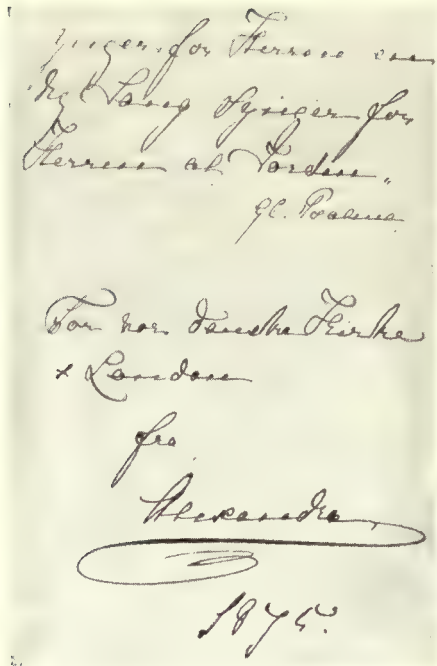 Synger for Herren en
Ny Sang Synger for
Herren al Jorden.
96. Psalme
For vor danske Kirke
i London
fra
Alexandra
1875.